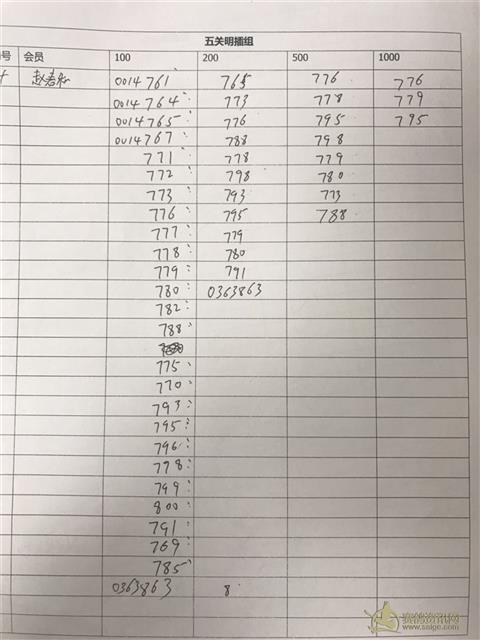 五关明插组
号 会员 100 200 500 1000
0014761 765 776 776
0014764 773 778 779
0014765 776 795 795
0014767 788 798
771 778 779
772 798 780
773 793 773
776 795 788
777 779
778 780
779 791
780 0363863
782
788
775
770
793
795
796
778
799
800
791
769
785
0363863 8
赛鸽资讯网
www.saige.com